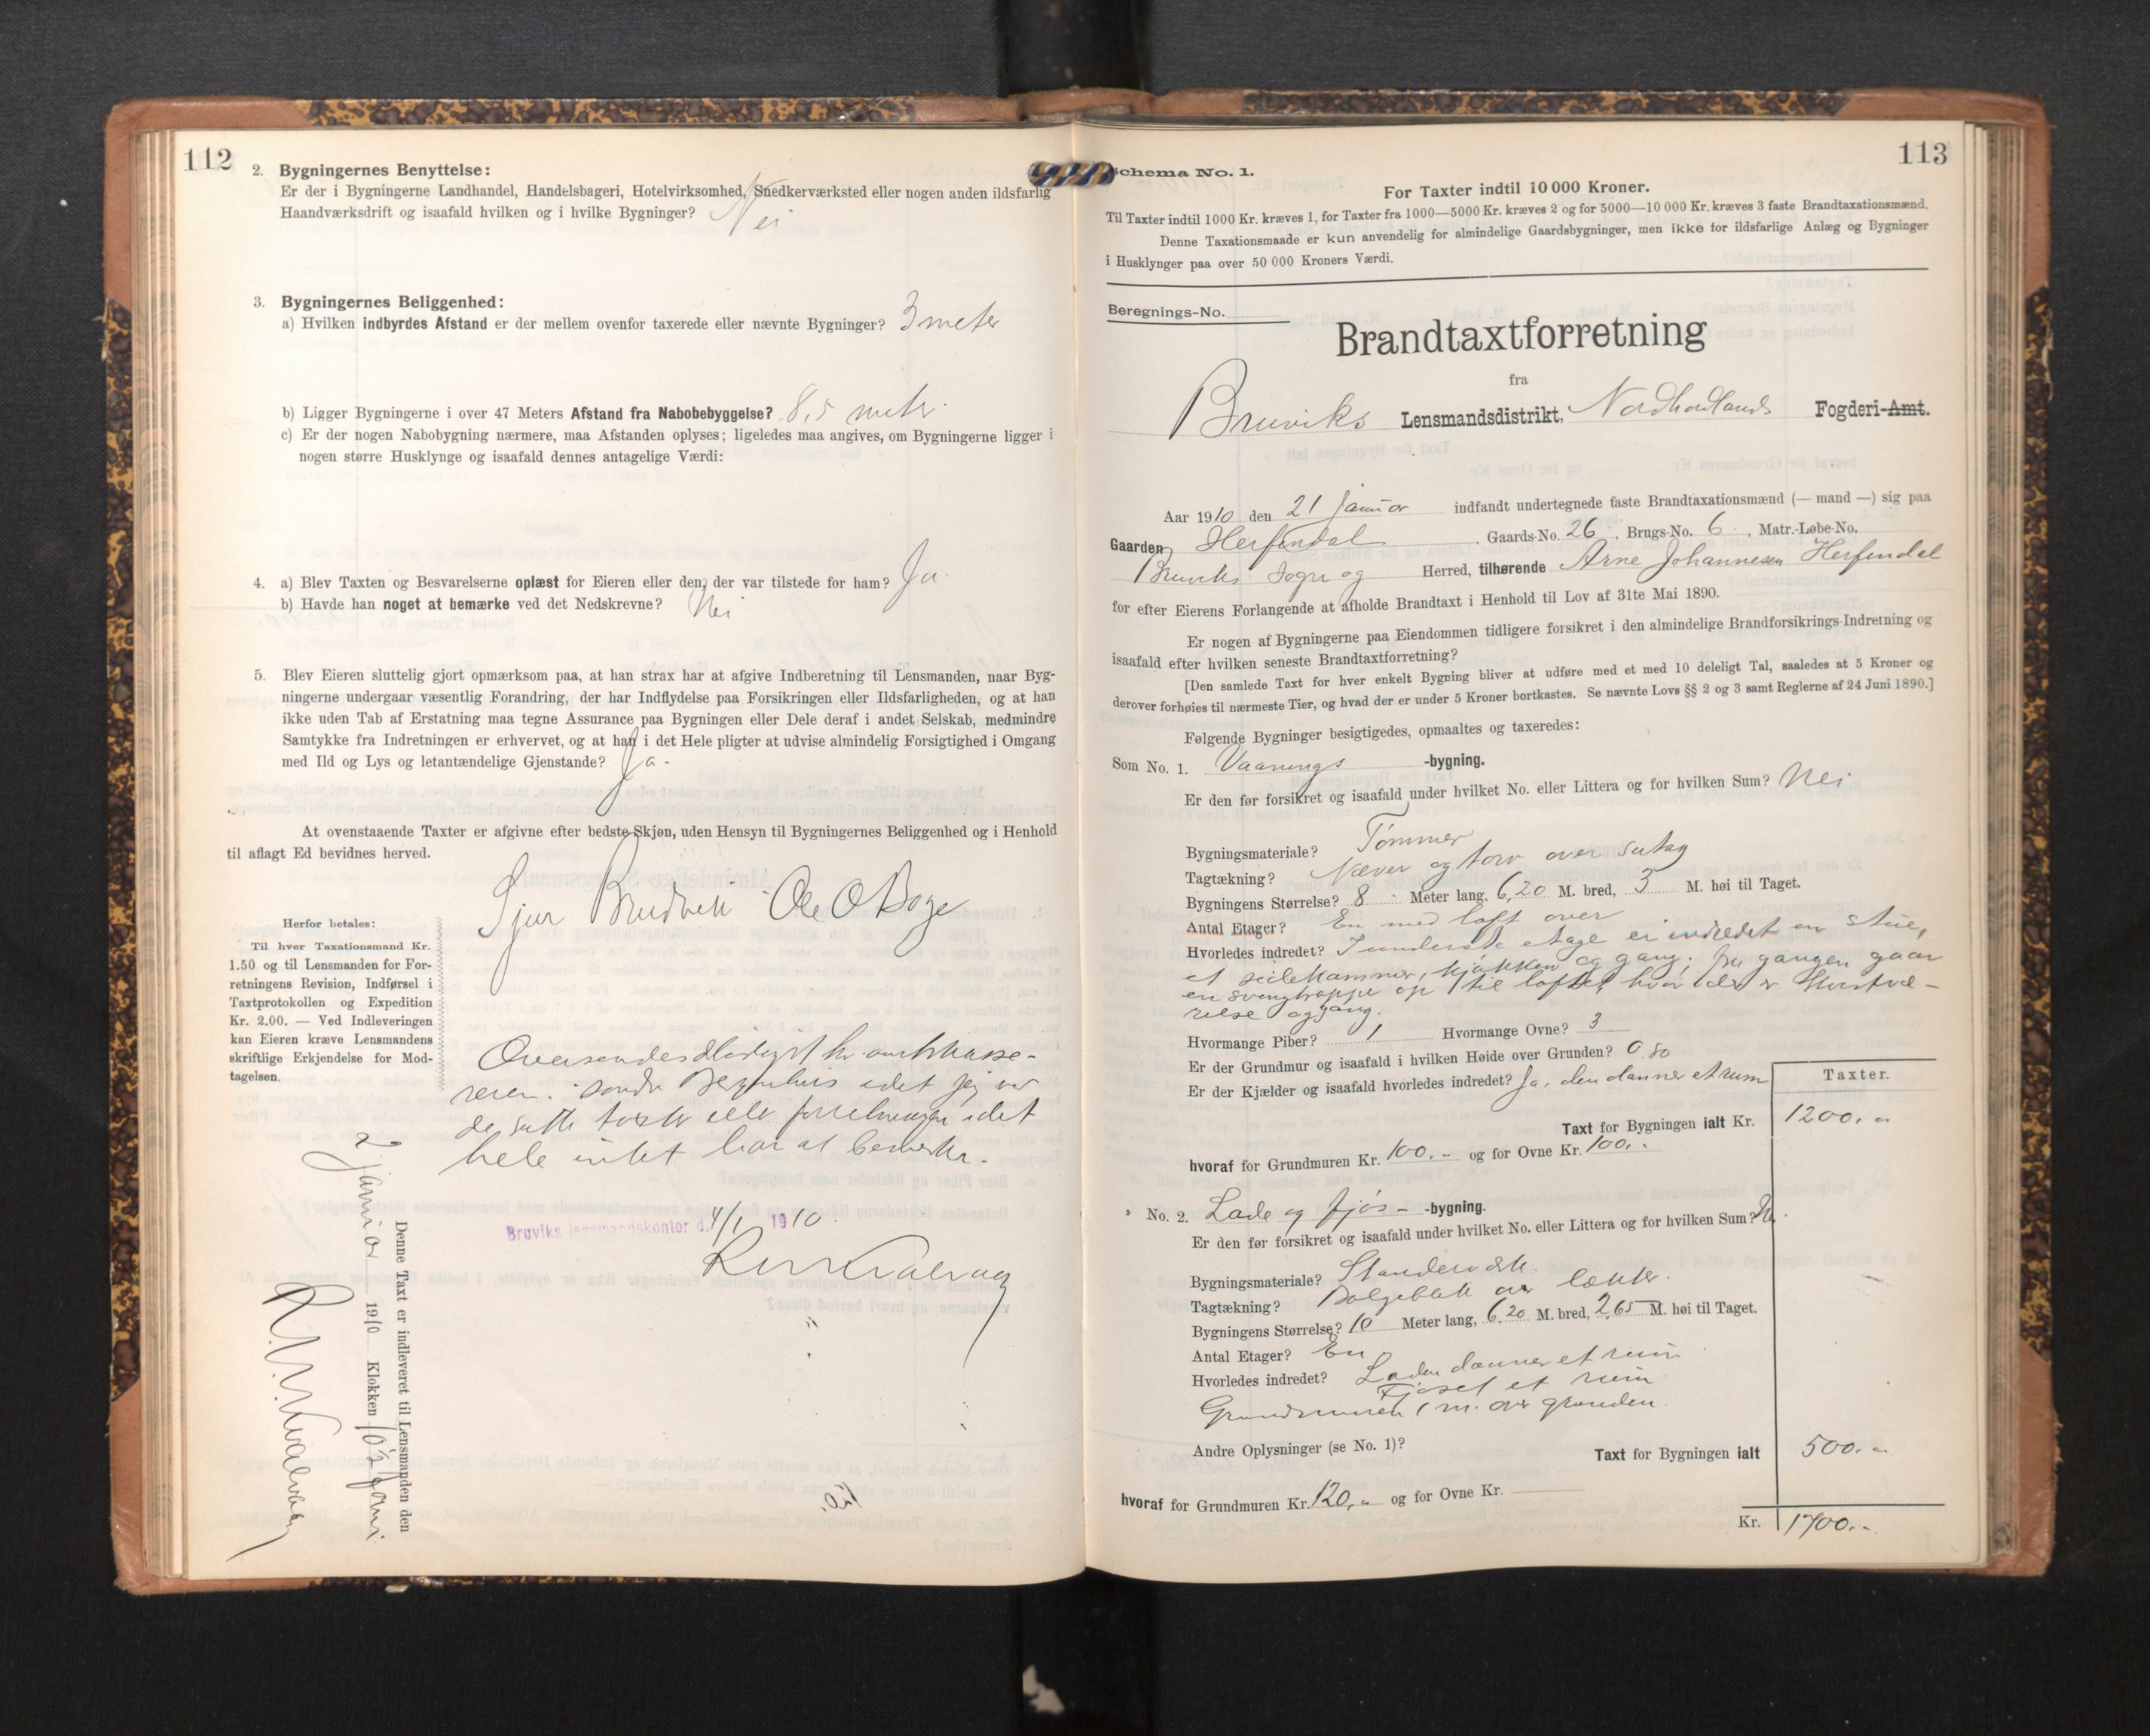 112
2. Bygningernes Benyttelse:
Er der i Bygningerne Landhandel, Handelsbageri, Hotelvirksomhed, Snedkerværksted eller nogen anden ildsfarlig
Haandværksdrift og isaafald hvilken og i hvilke Bygninger? Nei
3. Bygningernes Beliggenhed:
a) Hvilken indbyrdes Afstand er der mellem ovenfor taxerede eller nævnte Bygninger? 3 meter
b) Ligger Bygningerne i over 47 Meters Afstand fra Nabobebyggelse? 8,5 meter.
c) Er der nogen Nabobygning nærmere, maa Afstanden oplyses; ligeledes maa angives, om Bygningerne ligger i
nogen større Husklynge og isaafald dennes antagelige Værdi:
4. a) Blev Taxten og Besvarelserne oplæst for Eieren eller den, der var tilstede for ham? Ja
b) Havde han noget at bemærke ved det Nedskrevne? Nei
5. Blev Eieren sluttelig gjort opmærksom paa, at han strax har at afgive Indberetning til Lensmanden, naar Byg-
ningerne undergaar væsentlig Forandring, der har Indflydelse paa Forsikringen eller Ildsfarligheden, og at han
ikke uden Tab af Erstatning maa tegne Assurance paa Bygningen eller Dele deraf i andet Selskab, medmindre
Samtykke fra Indretningen er erhvervet, og at han i det Hele pligter at udvise almindelig Forsigtighed i Omgang
med Ild og Lys og letantændelige Gjenstande? Ja.
At ovenstaaende Taxter er afgivne efter bedste Skjøn, uden Hensyn til Bygningernes Beliggenhed og i Henhold
til aflagt Ed bevidnes herved.
Sjur Ole O Boge
Herfor betales:
Til hver Taxationsmand Kr.
1.50 og til Lensmanden for For-
retningens Revision, Indførsel i
Taxtprotokollen og Expedition
Kr. 2.00. — Ved Indleveringen
kan Eieren kræve Lensmandens
skriftlige Erkjendelse for Mod-
tagelsen.
Oversendes hr. amtskasse-
reren. idet jeg ved
de satte takster eller forretningen idet
hele intet har at bemerke.
Bruviks lensmandskontor d. 4/1 1910.
Denne Taxt er indleveret til Lensmanden den
2 Januar 1910 Klokken 10½ form.
113
Schema No. 1.
For Taxter indtil 10 000 Kroner.
Til Taxter indtil 1000 Kr. kræves 1, for Taxter fra 1000—5000 Kr. kræves 2 og for 5000—10 000 Kr. kræves 3 faste Brandtaxationsmænd.
Denne Taxationsmaade er kun anvendelig for almindelige Gaardsbygninger, men ikke for ildsfarlige Anlæg og Bygninger
i Husklynger paa over 50 000 Kroners Værdi.
Beregnings-No.
Brandtaxtforretning
fra
Bruviks Lensmandsdistrikt, Nordhordlands Fogderi-Amt.
Aar 1910 den 21 Januar indfandt undertegnede faste Brandtaxationsmænd (— mand —) sig paa
Gaarden Herfindal, Gaards-No. 26, Brugs-No. 6, Matr.-Løbe-No.
Bruviks Sogn og Herred, tilhørende Arne Johannesen Herfindal
for efter Eierens Forlangende at afholde Brandtaxt i Henhold til Lov af 31te Mai 1890.
Er nogen af Bygningerne paa Eiendommen tidligere forsikret i den almindelige Brandforsikrings-Indretning og
isaafald efter hvilken seneste Brandtaxtforretning?
[Den samlede Taxt for hver enkelt Bygning bliver at udføre med et med 10 deleligt Tal, saaledes at 5 Kroner og
derover forhøies til nærmeste Tier, og hvad der er under 5 Kroner bortkastes. Se nævnte Lovs §§ 2 og 3 samt Reglerne af 24 Juni 1890.]
Følgende Bygninger besigtigedes, opmaaltes og taxeredes:
Som No. 1. Vaanings -bygning.
Er den før forsikret og isaafald under hvilket No. eller Littera og for hvilken Sum? Nei
Bygningsmateriale? Tømmer
Tagtækning? Næver og torv over sutag
Bygningens Størrelse? 8 Meter lang, 6,20 M. bred, 3 M. høi til Taget.
Antal Etager? En med loft over
Hvorledes indredet? I underste etage er indredet en stue,
et sidekammer, kjøkken og gang. fra gangen gaar
en svingtrappe op til loftet hvor der er
relse og gang.
Hvormange Piber? 1 Hvormange Ovne? 3
Er der Grundmur og isaafald i hvilken Høide over Grunden? 0.80
Er der Kjælder og isaafald hvorledes indredet? Ja, den danner et rum
Taxter.
Taxt for Bygningen ialt Kr. 1200.-
hvoraf for Grundmuren Kr. 100.- og for Ovne Kr. 100.-
No. 2. Lade og fjøs- -bygning.
Er den før forsikret og isaafald under hvilket No. eller Littera og for hvilken Sum?
Bygningsmateriale? Standerverk.
Tagtækning? Bølgeblik over lækter.
Bygningens Størrelse? 10 Meter lang, 6,20 M. bred, 2,65 M. høi til Taget.
Antal Etager? En
Hvorledes indredet? Laden danner et rum
Fjøset et rum
Grundmuren 1 m. over grunden.
Andre Oplysninger (se No. 1)?
Taxt for Bygningen ialt 500.-
hvoraf for Grundmuren Kr. 120.- og for Ovne Kr.
Kr. 1700.-